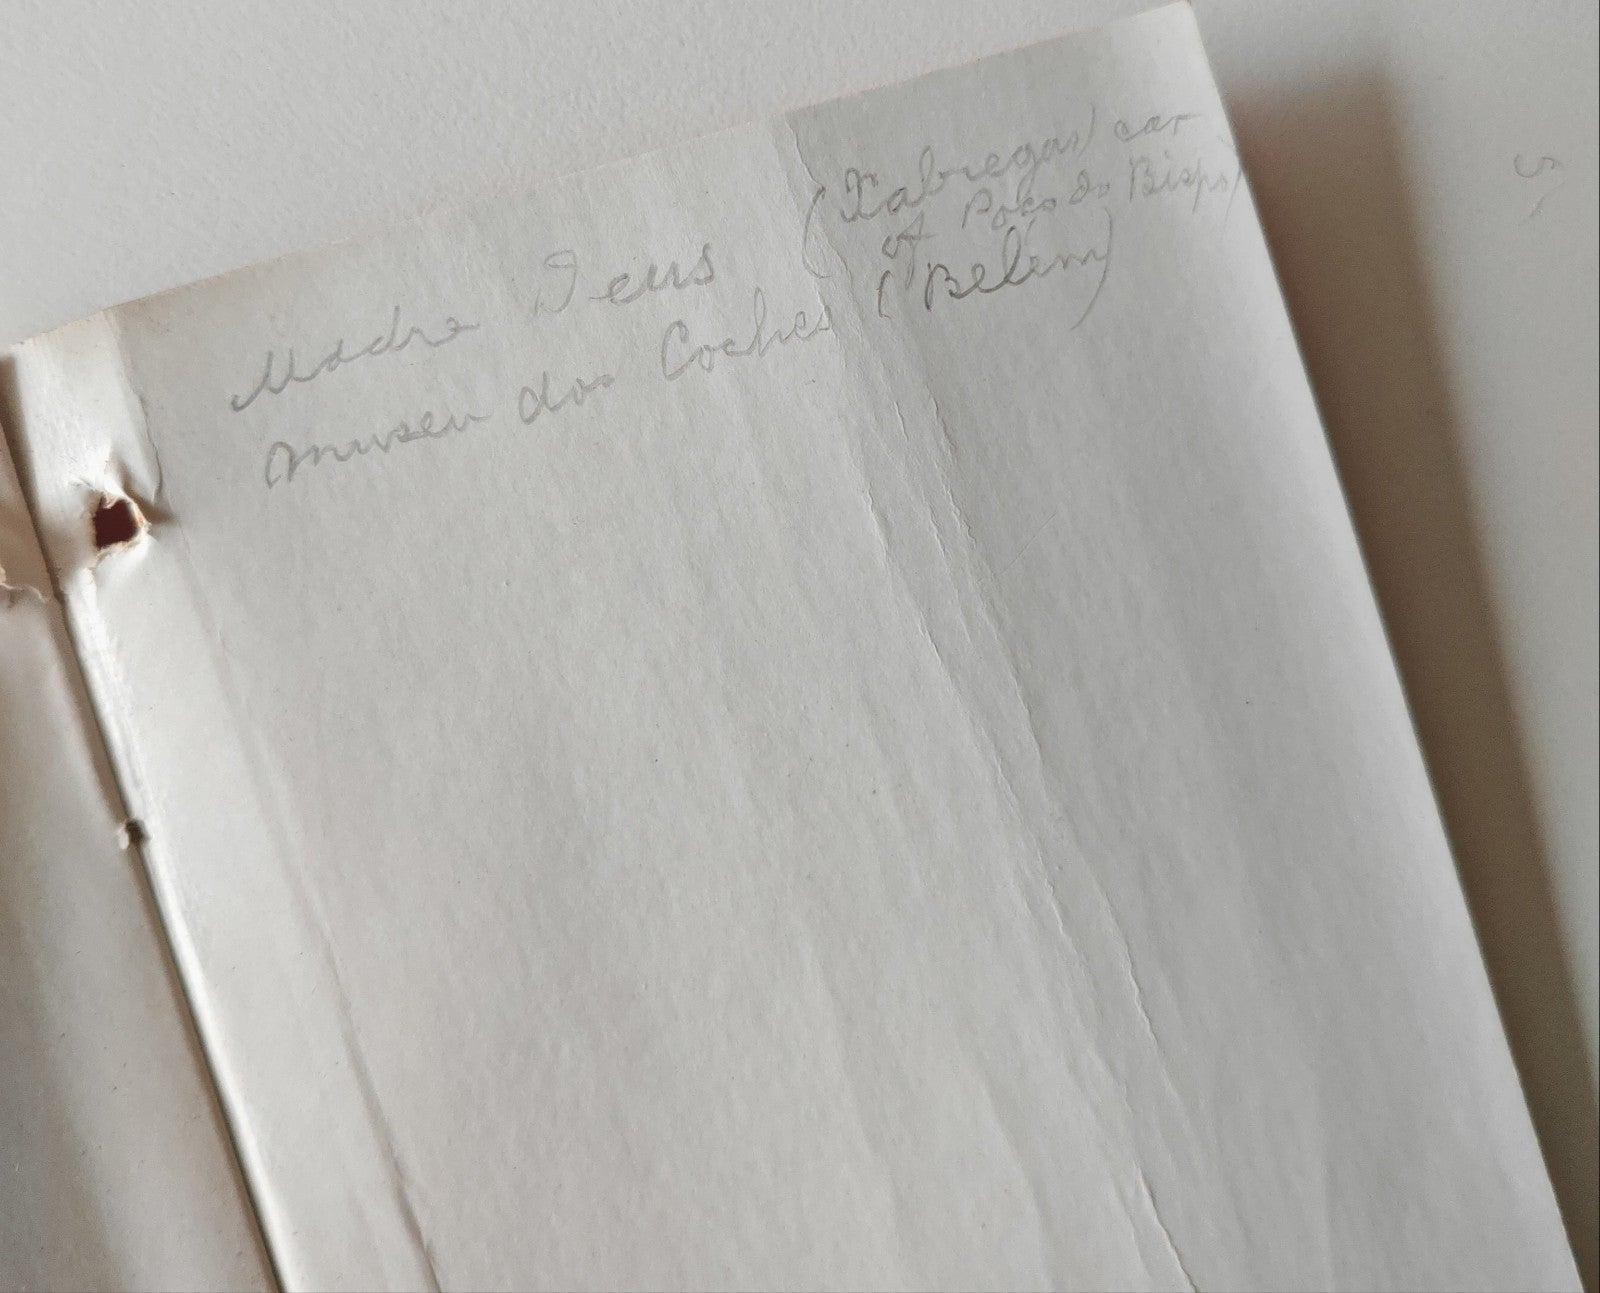 Madre Deus (Xabregas) car
of Poço do Bispo)
Museu dos Coches (Belém)